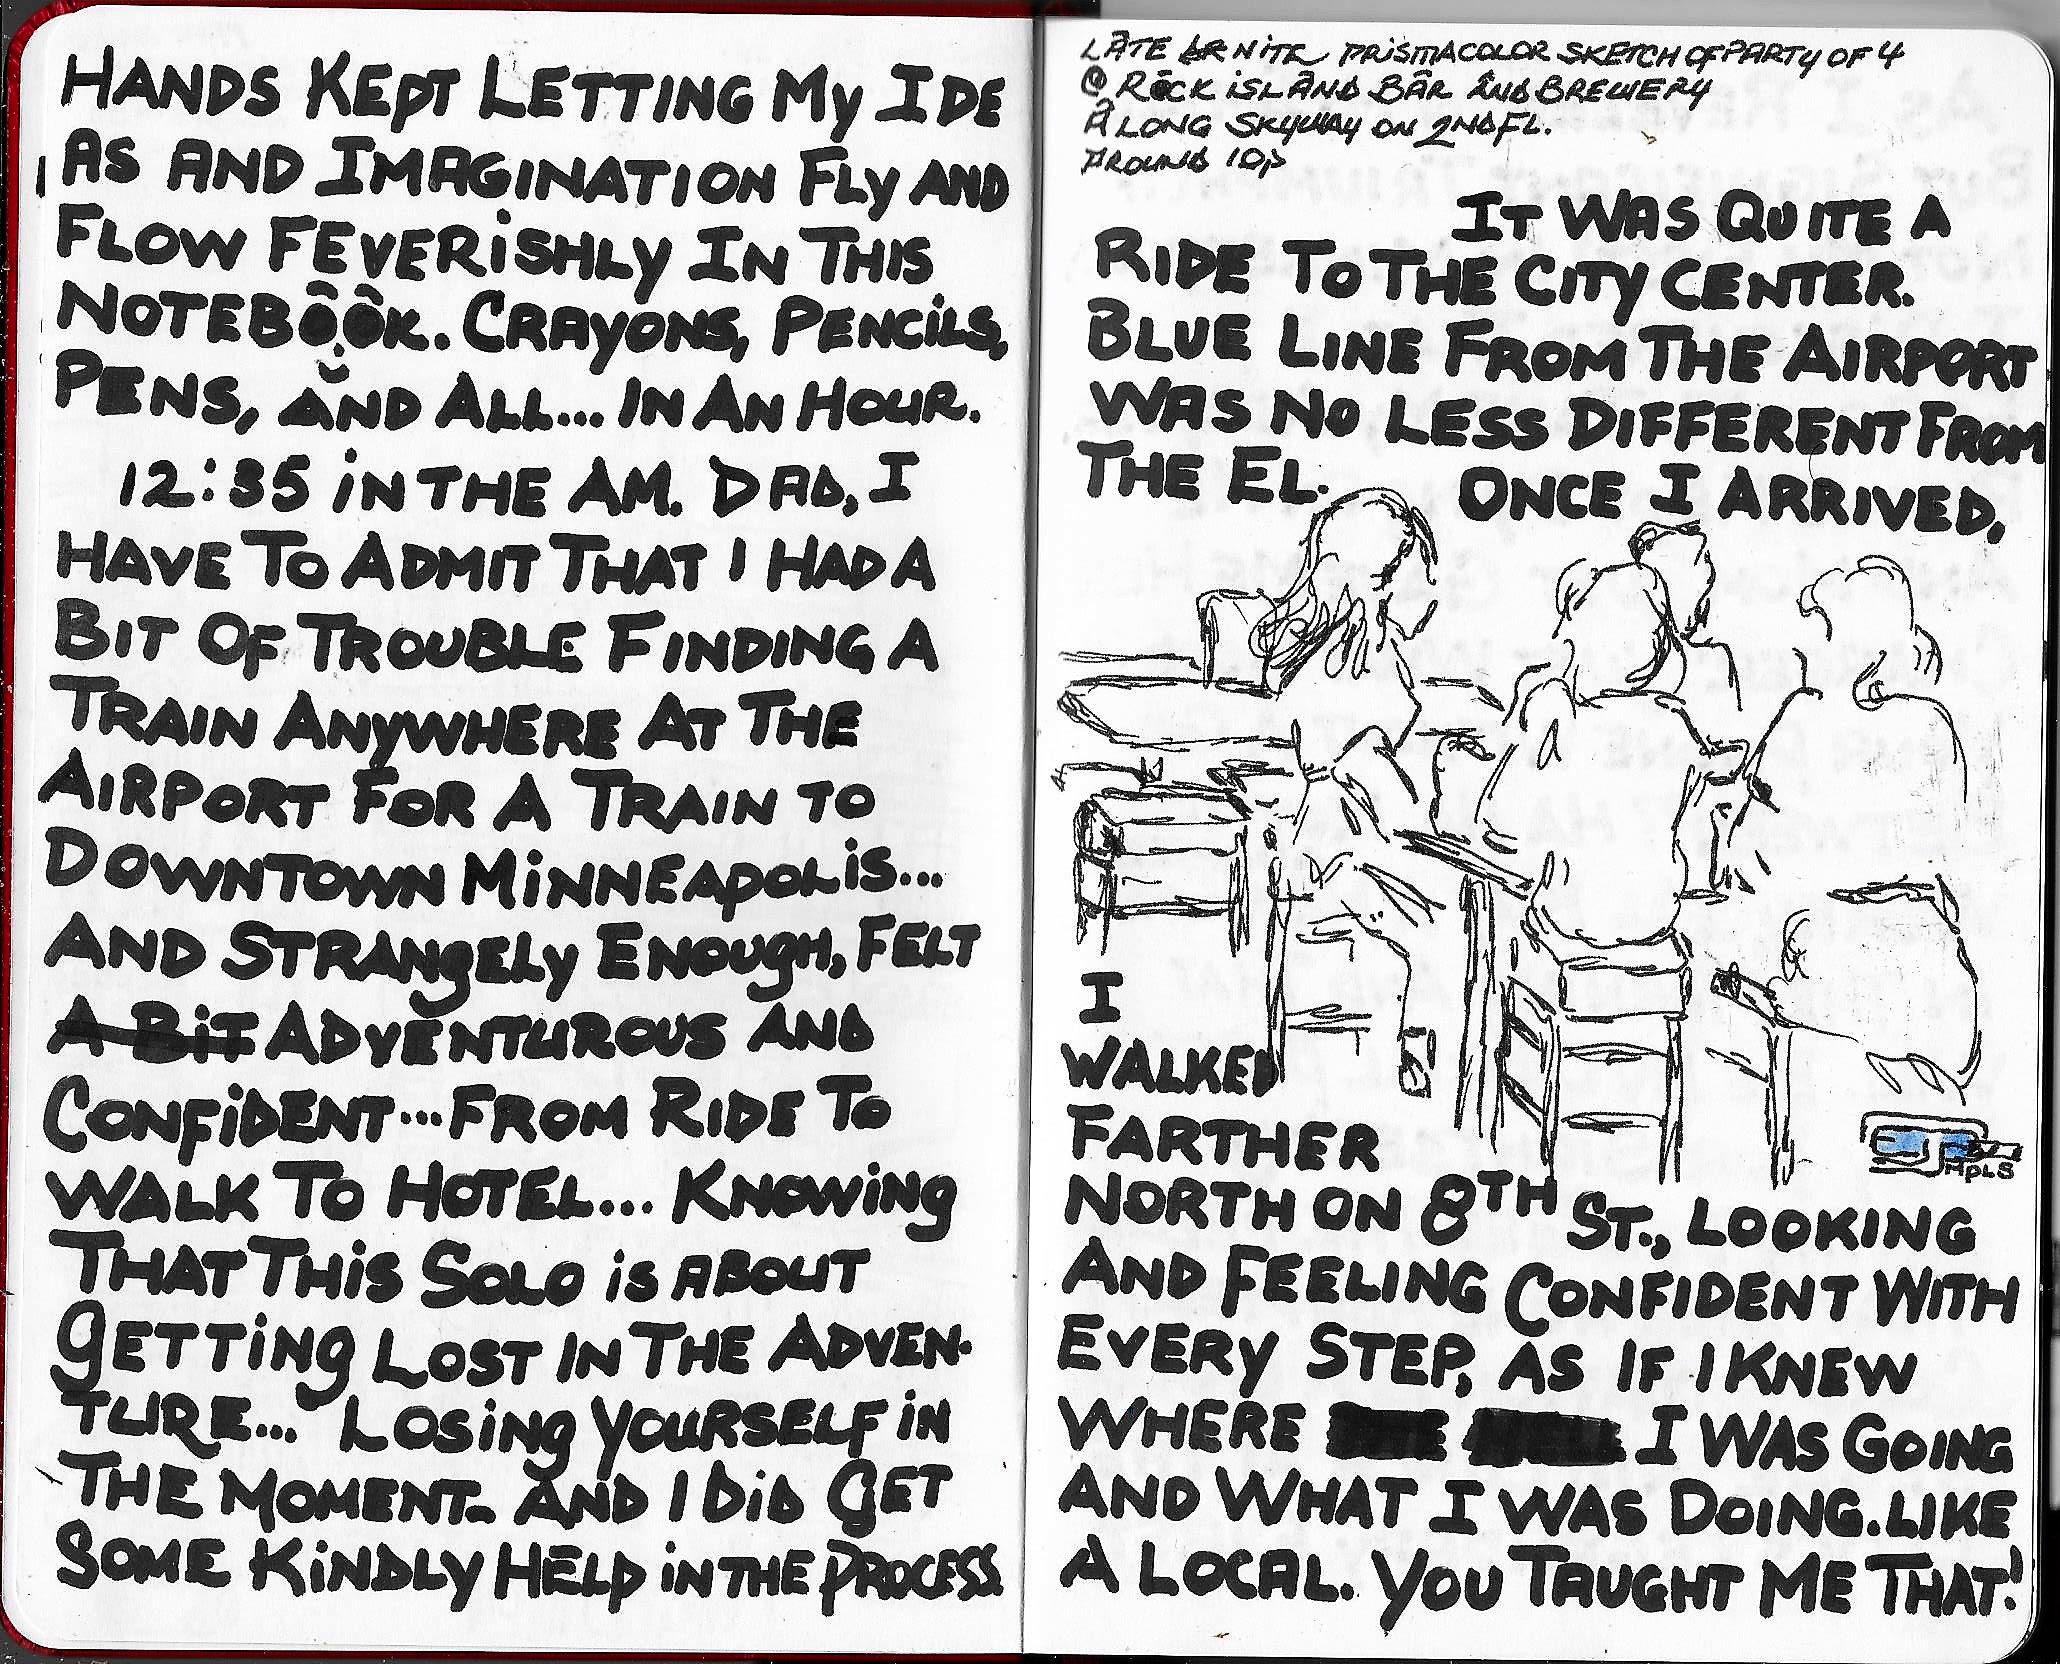 HANDS KEPT LETTING MY IDE
AS AND IMAGINATION FLY AND
FLOW FEVERISHLY IN THIS
NOTEBÔÔK. CRAYONS, PENCILS,
PENS, AND ALL... IN AN HOUR.
12:35 IN THE AM. DAD, I
HAVE TO ADMIT THAT I HAD A
BIT OF TROUBLE FINDING A
TRAIN ANYWHERE AT THE
AIRPORT FOR A TRAIN TO
DOWNTOWN MINNEAPOLIS...
AND STRANGELY ENOUGH, FELT
A BIT ADVENTUROUS AND
CONFIDENT... FROM RIDE TO
WALK TO HOTEL... KNOWING
THAT THIS SOLO IS ABOUT
GETTING LOST IN THE ADVEN-
TURE... LOSING YOURSELF IN
THE MOMENT. AND I DID GET
SOME KINDLY HELP IN THE PROCESS.
LATE NITE PRISMACOLOR SKETCH OF PARTY OF 4
@ ROCK ISLAND BAR AND BREWERY
ALONG SKYWAY ON 2ND FL.
AROUND 10P
IT WAS QUITE A
RIDE TO THE CITY CENTER.
BLUE LINE FROM THE AIRPORT
WAS NO LESS DIFFERENT FROM
THE EL. ONCE I ARRIVED,
I
WALKED
FARTHER
MPLS
NORTH ON 8TH ST., LOOKING
AND FEELING CONFIDENT WITH
EVERY STEP, AS IF I KNEW
WHERE I WAS GOING
AND WHAT I WAS DOING. LIKE
A LOCAL. YOU TAUGHT ME THAT!